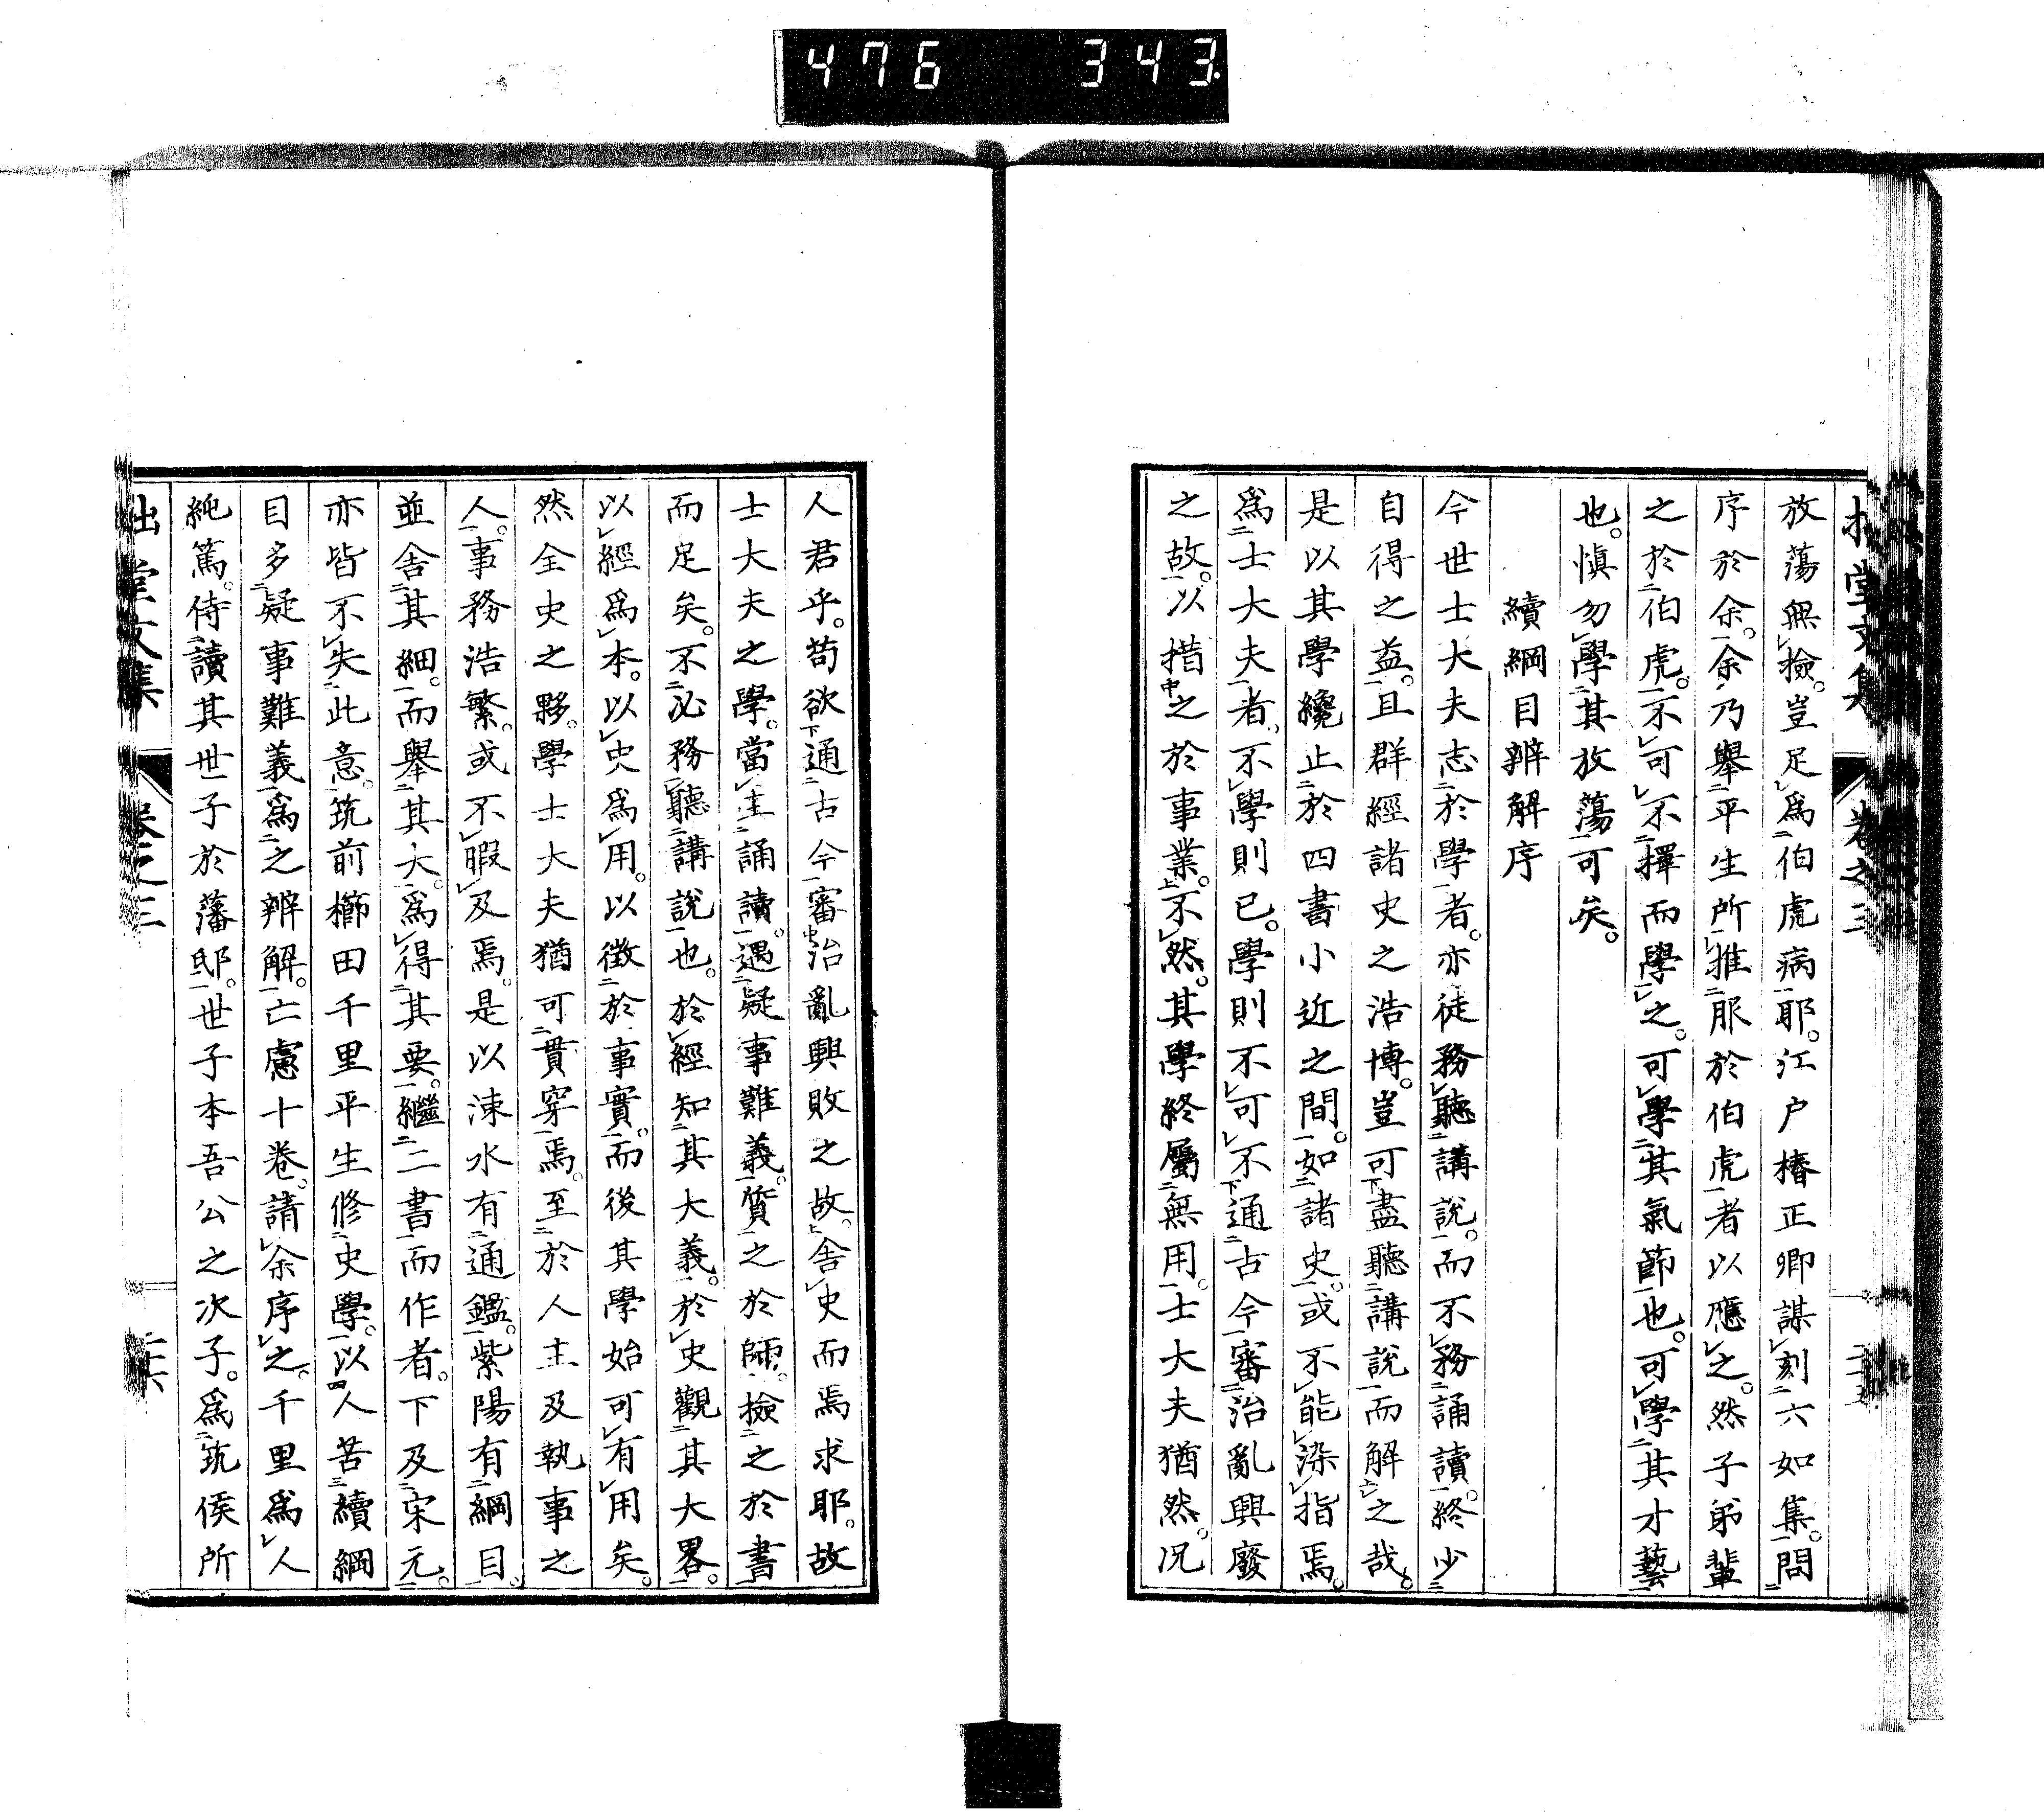 476 343
放蕩無檢。豈足爲伯虎病耶。江戶椿正卿謀刻六如集。問
序於余。余乃舉平生所推服於伯虎者以應之。然子弟輩
之於伯虎。不可不擇而學之。可學其氣節也。可學其才藝
也。愼勿學其放蕩可矣。
續綱目辨解序
今世士大夫志於學者。亦徒務聽講說。而不務誦讀。終少
自得之益。且群經諸史之浩博。豈可盡聽講說而解之哉。
是以其學纔止於四書小近之間。如諸史。或不能染指焉。
爲士大夫者。不學則已。學則不可不通古今審治亂興廢
之故。以措之於事業。不然。其學終屬無用。士大夫猶然。况
人君乎。苟欲通古今審治亂興敗之故。舍史而焉求耶。故
士大夫之學。當主誦讀。遇疑事難義。質之於師。檢之於書
而足矣。不必務聽講說也。於經知其大義。於史觀其大畧。
以經爲本。以史爲用。以徵於事實。而後其學始可有用矣。
然全史之夥。學士大夫猶可貫穿焉。至於人主及執事之
人。事務浩繁。或不暇及焉。是以涑水有通鑑。紫陽有綱目。
並舍其細。而舉其大。爲得其要。繼二書而作者。下及宋元。
亦皆不失此意。筑前櫛田千里平生修史學。以人苦續綱
目多疑事難義爲之辨解。亡慮十卷。請余序之。千里爲人
純篤。侍讀其世子於藩邸。世子本吾公之次子。爲筑侯所
堂文集 卷之三